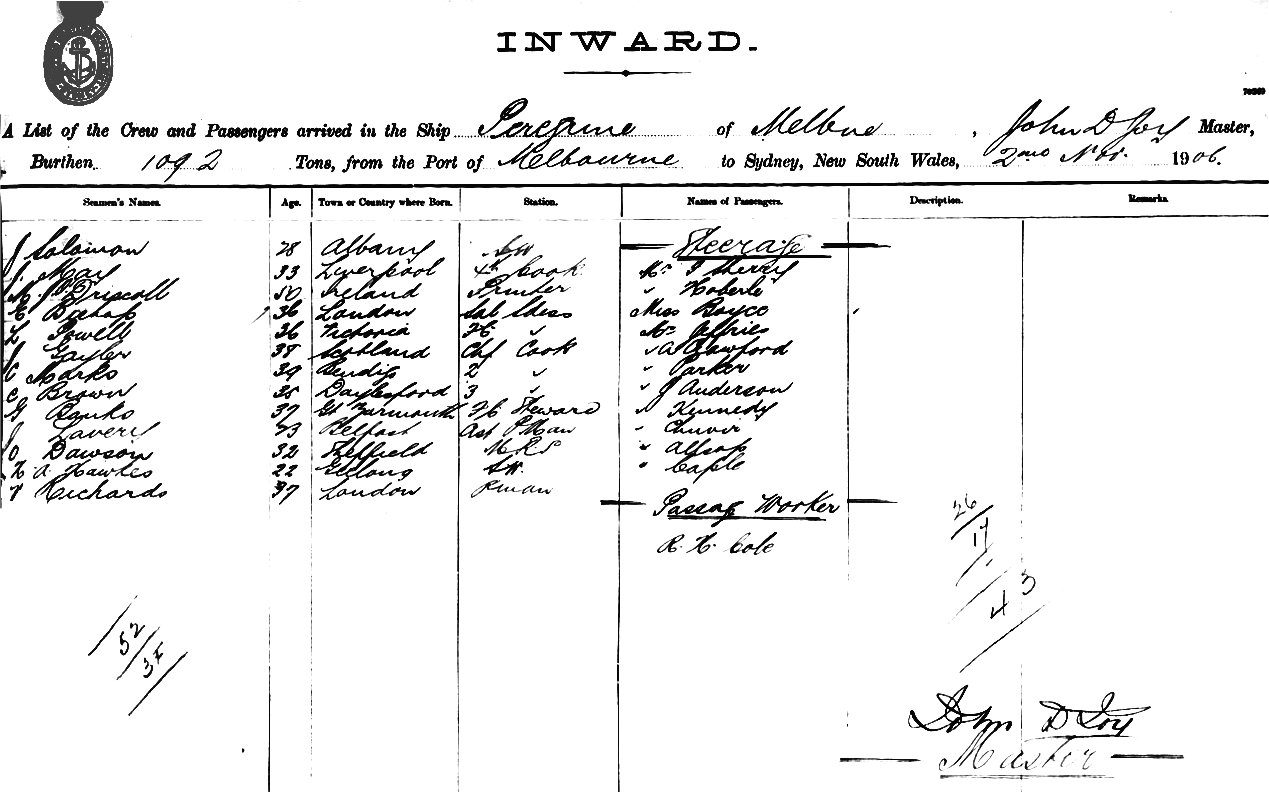 INWARD.
A List of the Crew and Passengers arrived in the Ship Peregrine of Melbne , John D Joy Master,
Burthen 1092 Tons, from the Port of Melbourne to Sydney, New South Wales, 2nd Nov. 1906.
Seamen's Names. Age. Town or Country where Born. Station. Names of Passengers. Description. Remarks.
J Solomon 28 Albany Steerage
J. May 33 Liverpool 4th Cook Mr Sherry
M. Driscoll 50 Ireland Printer " Haberle
C Bishop 36 London Sal Stess Miss Boyce
Powell 36 Victoria FC " Mr Jeffries
J Gayler 38 Scotland Chf Cook " A Crawford
C Marks 39 Bendigo 2 " " Parker
C Brown 38 Daylesford 3 " " J Anderson
G Banks 37 Gt Yarmouth FC Steward " Kennedy
J Lavery 23 Belfast Ast PMan "
O Dawson 32 Sheffield MRS " Allsop
A Hawkes 22 Geelong SW. " Caple
Richards 37 London Pman
Passag Worker
R. H. Cole
26
17
43
52
37
John D Joy
Master